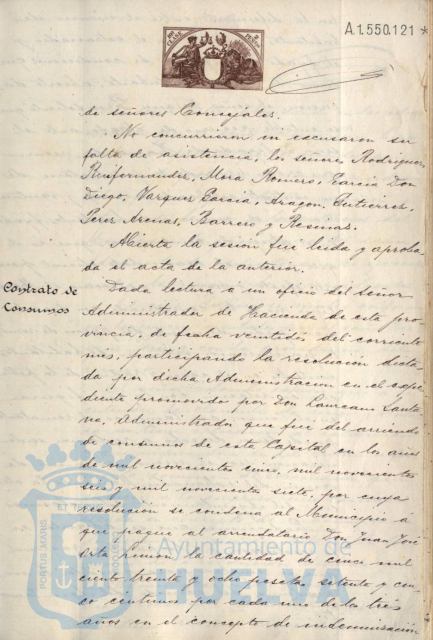 A.1.550.121 *
de señores Concejales.
No concurrieron ni excusaron su
falta de asistencia, los señores Rodriguez,
Ruifernandez, Mora Romero, Garcia Don
Diego, Vazquez Garcia, Aragon, Gutierrez,
Perez Arenas, Barrero y Resinas.
Abierta la sesión fué leida y aproba-
da el acta de la anterior.
Contrato de
Consumos
Dada lectura á un oficio del señor
Administrador de Hacienda de esta pro-
vincia, de fecha veintidós del corriente
mes, participando la resolución dicta-
da por dicha Administracion en el expe-
diente promovido por Don Laureano Santa-
na, Administrador que fué del arriendo
de consumos de esta Capital en los años
de mil novecientos cinco, mil novecientos
seis y mil novecientos siete, por cuya
resolución se condena al Municipio á
que pague al arrendatario Don Juan José
la cantidad de cinco mil
ciento treinta y ocho pesetas setenta y cin-
co centimos por cada uno de los tres
años en el concepto de indemnización
Ayuntamiento de
HUELVA
PORTUS MARIS